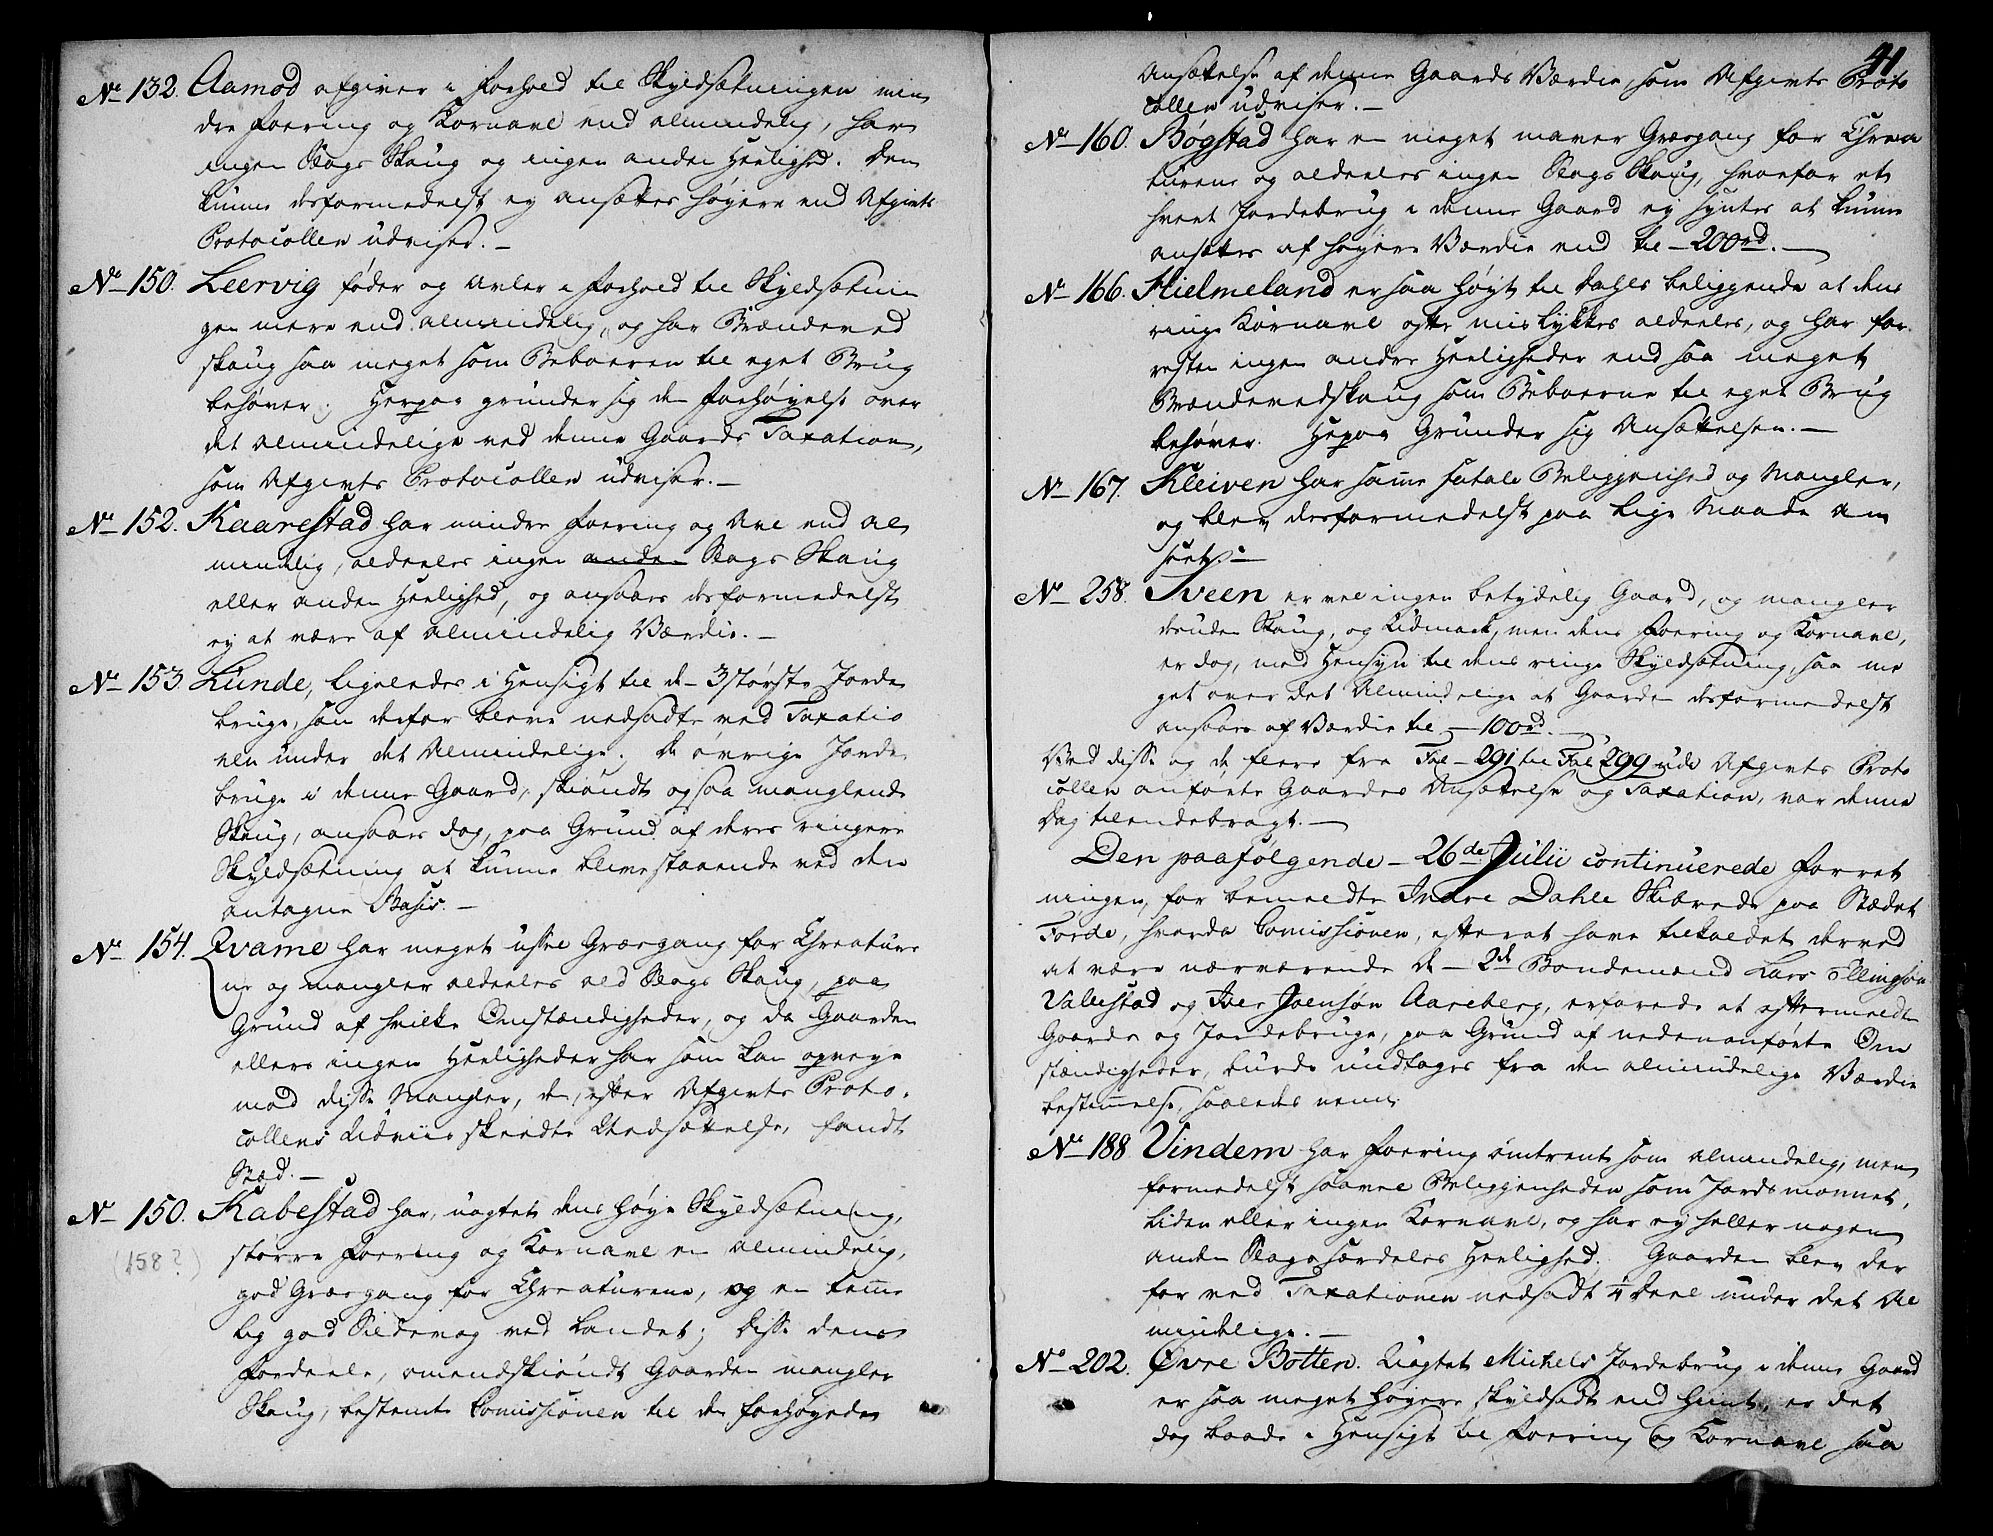 No 132. Aamod afgiver i Forhold til Skyldsætningen min
dre Foering og Kornavl end almindelig, har
ingen Slags Skaug og ingen anden Herlighed. Den
kunne desformedelst ey ansættes høyere end Afgivts
Protocollen udviser. —
No 150. Leervig føder og avler i Forhold til Skyldsætnin
gen mere end almindelig, og har Brændeved
skaug saa meget som Beboeren til eget Brug
behøver. Herpaa grunder sig den Forhøyelse over
det almindelige ved denne Gaards Taxation,
som Afgivts Protocollen udviser. —
No 152. Kaarestad har mindre Foering og Avl end al
mindelig, aldeeles ingen anden Slags Skaug
eller anden Herlighed, og ansaaes desformedelst
ey at være af almindelig Værdie. —
No 153. Lunde, ligeledes i Hensigt til de 3 største Jorde
bruge, som derfor bleve nedsadte ved Taxatio
nen under det Almindelige. De øvrige Jorde
bruge i denne Gaard, skiøndt ogsaa manglende
Skaug, ansaaes dog, paa Grund af deres ringere
Skyldsætning at kunne blive staaende ved den
antagne Basis. —
No 154. Qvame har meget ussel Græsgang for Chreature
ne og mangler aldeeles all Slags Skaug, paa
Grund af hvilke Omstændigheder, og da Gaarden
ellers ingen Herligheder har som kan opveye
mod disse Mangler, den, efter Afgivts Proto-
collens Udviis skeedte Nedsættelse, fandt
Stæd. —
No 150. Kabestad har, uagtet dens høye Skyldsætning,
(158?) større Foering og Kornavl en almindelig,
god Græsgang for Chreaturene, og en temme
lig god Sildevog ved Landet; disse dens
Fordeele, omendskiøndt Gaarden mangler
Skaug, bestemte Comissionen til den forhøyede
41
Ansættelse af denne Gaards Værdie, som Afgivts Proto
collen udviser. —
No 160. Bøgstad har en meget maver Græsgang for Chrea
turene og aldeeles ingen Slags Skaug, hvorfor et
hvert Jordebrug i denne Gaard ey syntes at kunne
ansættes af høyere Værdie end til — 200 rd. —
No 166. Hielmeland er saa høyt til Fields beliggende at dens
ringe Kornavl ofte mislykkes aldeeles, og har for
resten ingen andre Herligheder end saa meget
Brændevedskaug som Beboerne til eget Brug
behøver. Herpaa Grunder sig Ansættelsen. —
No 167. Kleiven har samme fatale Beliggenhed og Mangler,
og blev desformedelst paa lige Maade an
seet. —
No 258. Tveen er vel ingen betydelig Gaard, og mangler
desuden Skaug, og Udmark, men dens Foering og Kornavl,
er dog, med Hensyn til dens ringe Skyldsætning, saa me
get over det Almindelige at Gaarden desformedelst
ansaaes af Værdie til — 100 rd. —
Ved disse og de flere fra Fol — 291 til Fol 299 udi Afgivts Proto
collen anførte Gaardes Ansættelse og Taxation, var denne
Dag tilendebragt. —
Den paafølgende — 26de Julii continuerede Forret
ningen, for bemeldte Indre Dahls Skibrede paa Stædet
Førde, hvorda Comissionen, efter at have tilkaldet derved
at være nærværende de — 2de Bondemænd Lars Ellingsøn
Vallestad og Iver Joensøn Aareberg, erfarede at eftermeldte
Gaarde og Jordebruge, paa Grund af nedenanførte Om
stændigheder, burde undtages fra den almindelige Værdie
bestemmelse, saaledes nemlig
No 188 Vindem har Foering omtrent som almindelig, men
formedelst saavel Beliggenheden som Jordsmonnet,
liden eller ingen Kornavl, og har ey heller nogen
anden Slags særdeles Herlighed. Gaarden blev der
for ved Taxationen nedsadt 1/4 Deel under det Al
mindelige. —
No 202. Øvre Botten. Uagtet Michels Jordebrug i denne Gaard
er saa meget høyere skyldsadt end hint, er det
dog baade i Hensigt til Foering og Kornavl saa